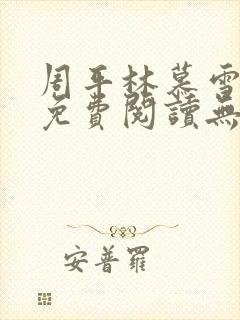 周平林慕雪
免費閱讀無
安普羅